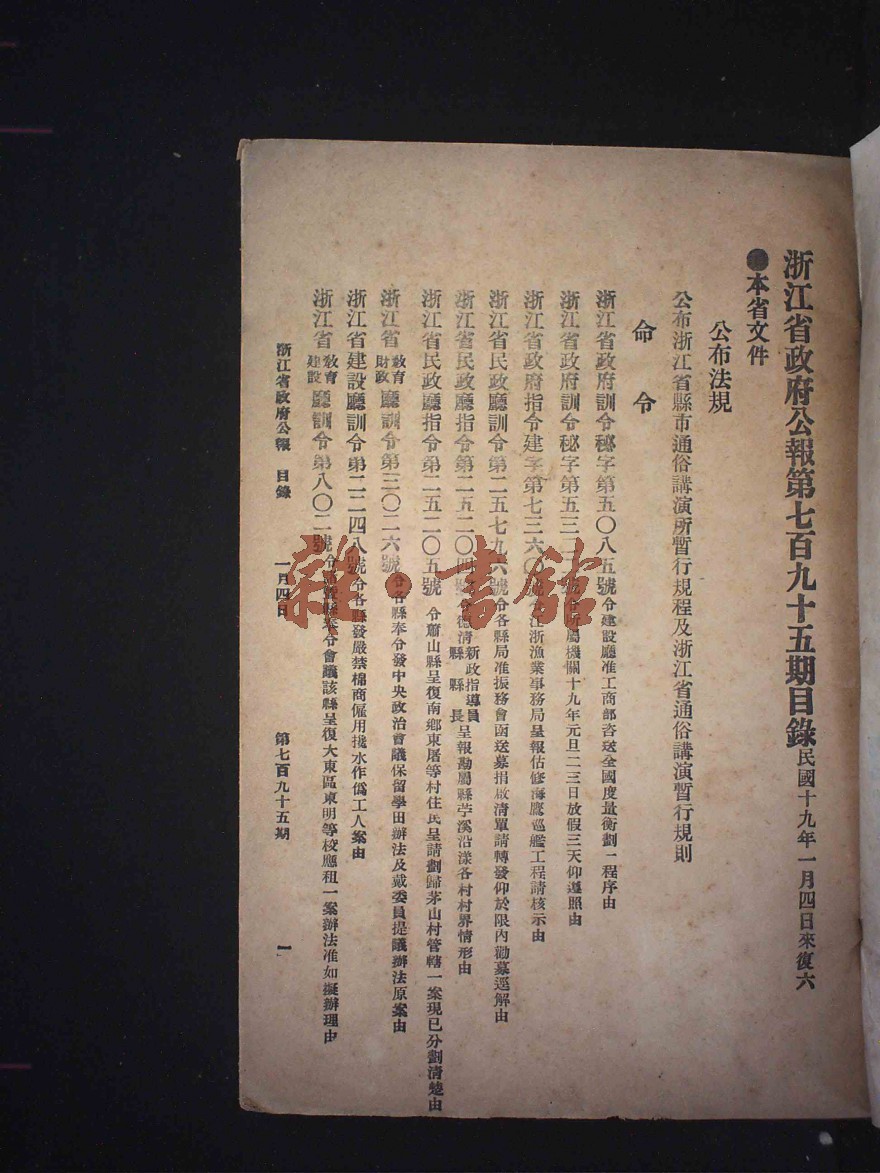 浙江省政府公報第七百九十五期目錄民國十九年一月四日來復六
●本省文件
公布法規
公布浙江省縣市通俗講演所暫行規程及浙江省通俗講演暫行規則
命令
浙江省政府訓令秘字第五〇八五號令建設廳准工商部咨送全國度量衡劃一程序由
浙江省政府訓令秘字第五三二號令所屬機關十九年元旦二三日放假三天仰遵照由
浙江省政府指令建字第七三六〇號令江浙漁業事務局呈報估修海鷹巡艦工程請核示由
浙江省民政廳訓令第二五七九六號令各縣局准振務會函送募捐啟清單請轉發仰於限內勸募逕解由
浙江省民政廳指令第二五二〇四號令德清縣新政指導員縣長呈報勘屬縣苧溪沿漾各村村界情形由
浙江省民政廳指令第二五二〇五號令蕭山縣呈復南鄉東屠等村住民呈請劃歸茅山村管轄一案現已分劃清楚由
浙江省教育財政廳訓令第三〇二六號令各縣奉令發中央政治會議保留學田辦法及戴委員提議辦法原案由
浙江省建設廳訓令第二二四八號令各縣發嚴禁棉商僱用攙水作僞工人案由
浙江省教育建設廳訓令第八〇二號令縣奉令會議該縣呈復大東區東明等校應租一案辦法准如擬辦理由
浙江省政府公報 目錄 一月四日 第七百九十五期 一
雜·書館